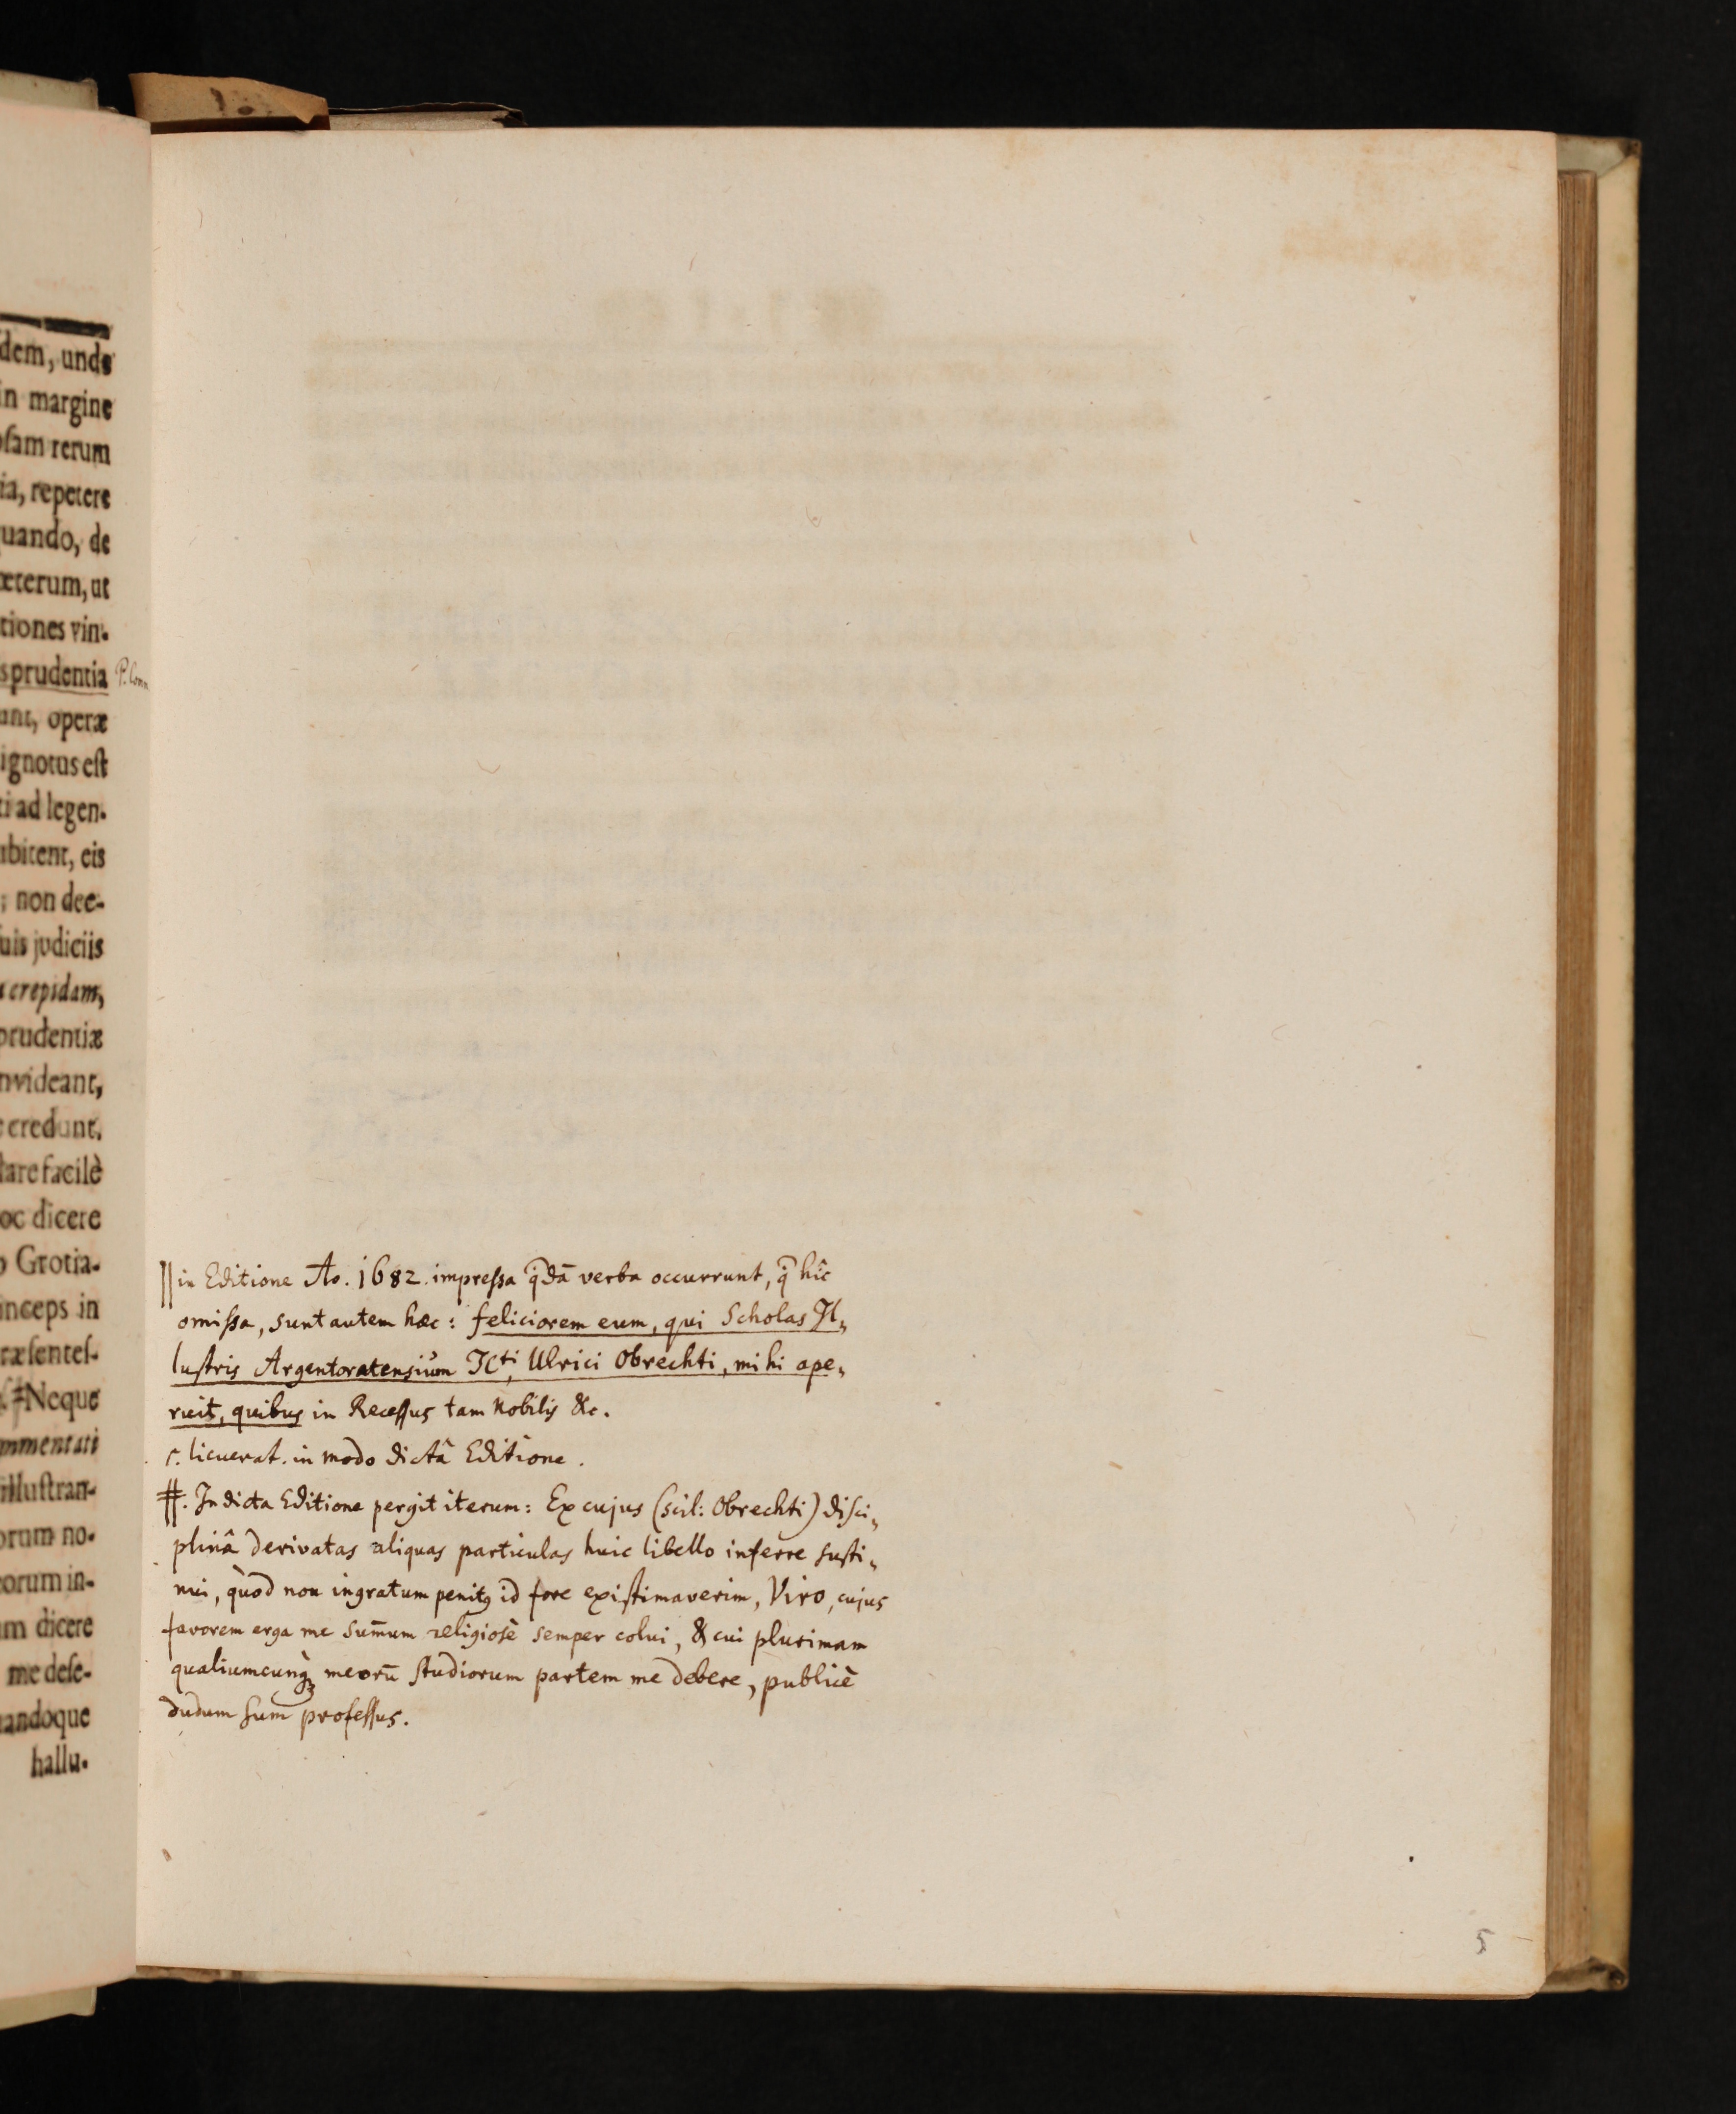 dem, unde
in margine
sam rerum
ia, repetere
uando, de
æterum, ut
tiones vin-
sprudentia
unt, operæ
ignotus est
ti ad legen-
ubitent, eis
; non dee-
uis judiciis
crepidam,
prudentiæ
nvideant,
credunt.
lare facilè
oc dicere
Grotia-
inceps in
ræsentes-
Neque
mmentati
illustran-
orum no-
eorum in-
m dicere
me dese-
uandoque
hallu-
|| in Editione Ao. 1682. impressa q̃dā verba occurrunt, q̃ hîc
omissa, sunt autem hæc: feliciorem eum, qui Scholas Il„
lustris Argentoratensium ICti, Ulrici Obrechti, mihi ape„
ruit, quibus in Recessus tam nobilis &c.
c. licuerat. in modo dictâ Editione.
#. In dicta Editione pergit iterum: Ex cujus (scil: Obrechti) disci„
plinâ derivatas aliquas particulas huic libello inferre susti„
nui, quòd non ingratum penitꝰ id fore existimaverim, Viro, cujus
favorem erga me sum̄um religiosè semper colui, & cui plurimam
qualiumcunqꝫ meorū studiorum partem me debere, publicè
dudum sum professus.
5